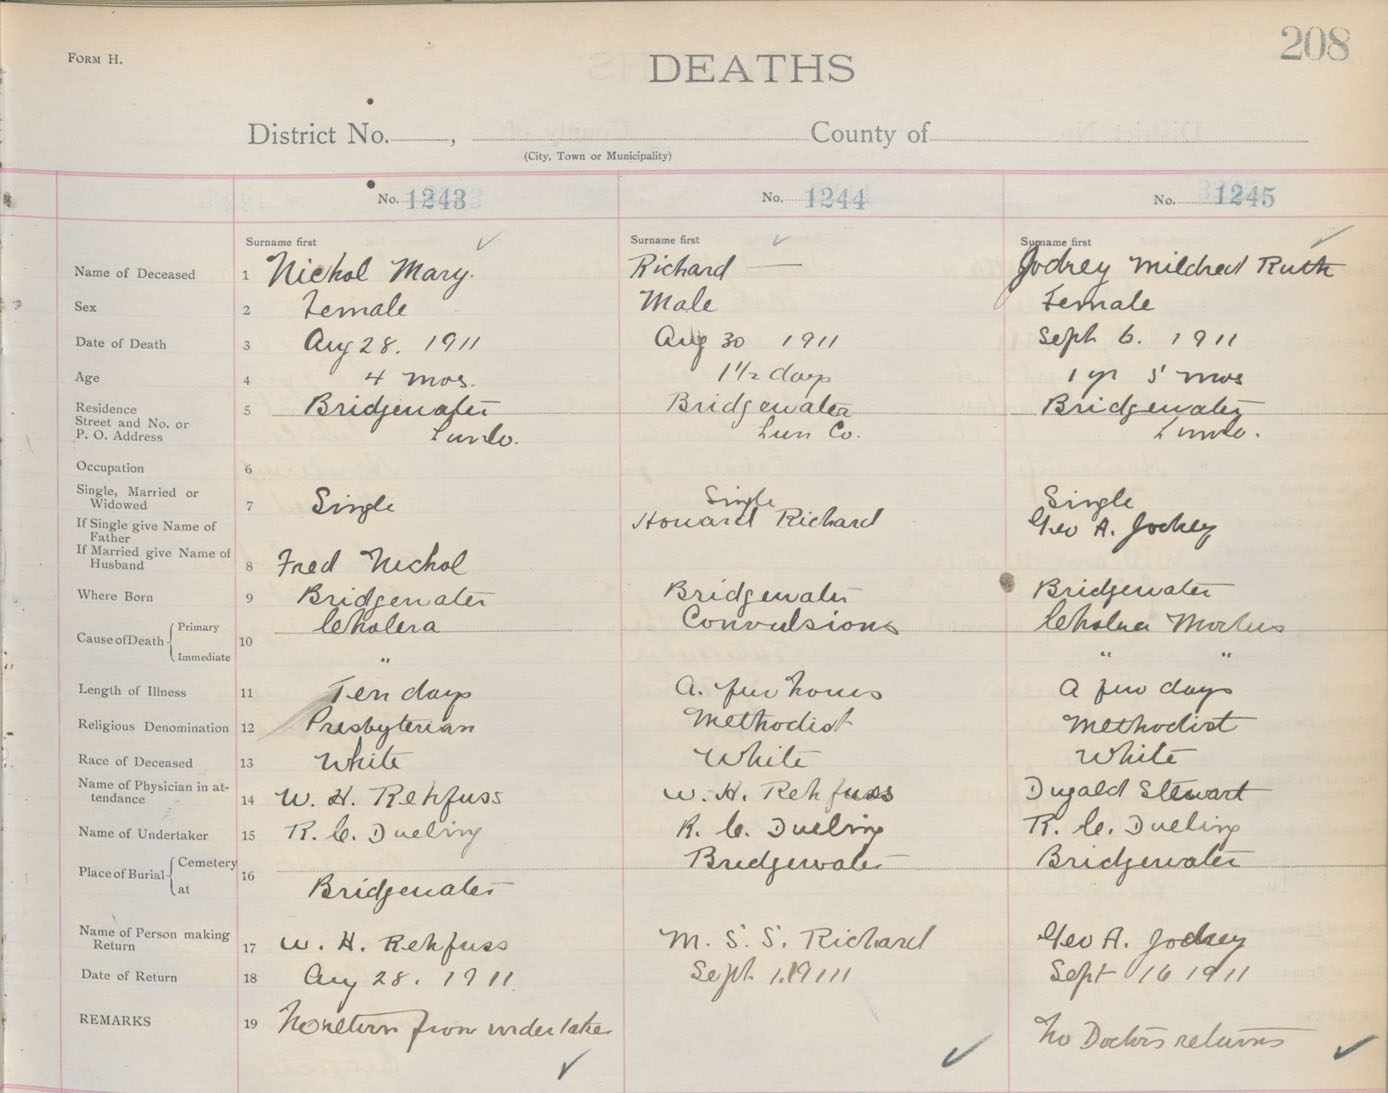 208
FORM H.
DEATHS
District No. , County of
(City, Town or Municipality)
No. 1243 No. 1244 No. 1245
Surname first Surname first Surname first
Name of Deceased 1 Nickol Mary. Richard — Jodrey Mildred Ruth
Sex 2 Female Male Female
Date of Death 3 Aug 28. 1911 Aug 30 1911 Sept 6. 1911
Age 4 4 mos. 1 1/2 days 1 yr 5 mos
Residence
Street and No. or
P. O. Address 5 Bridgewater Bridgewater Bridgewater
Lun Co. Lun Co. Lun Co.
Occupation 6
Single, Married or
Widowed 7 Single Single Single
If Single give Name of
Father Howard Richard Geo A. Jodrey
If Married give Name of
Husband 8 Fred Nickol
Where Born 9 Bridgewater Bridgewater Bridgewater
Cause of Death Primary 10 Cholera Convulsions Cholera Morbus
Immediate " " "
Length of Illness 11 Ten days A. few hours A few days
Religious Denomination 12 Presbyterian Methodist Methodist
Race of Deceased 13 White White White
Name of Physician in at-
tendance 14 W. H. Rehfuss W. H. Rehfuss Dugald Stewart
Name of Undertaker 15 R. C. Dueling R. C. Dueling R. C. Dueling
Place of Burial Cemetery 16 Bridgewater Bridgewater
at Bridgewater
Name of Person making
Return 17 W. H. Rehfuss M. S. S. Richard Geo A. Jodrey
Date of Return 18 Aug 28. 1911 Sept 1. 1911 Sept 16 1911
REMARKS 19 No return from undertaker No Doctors returns